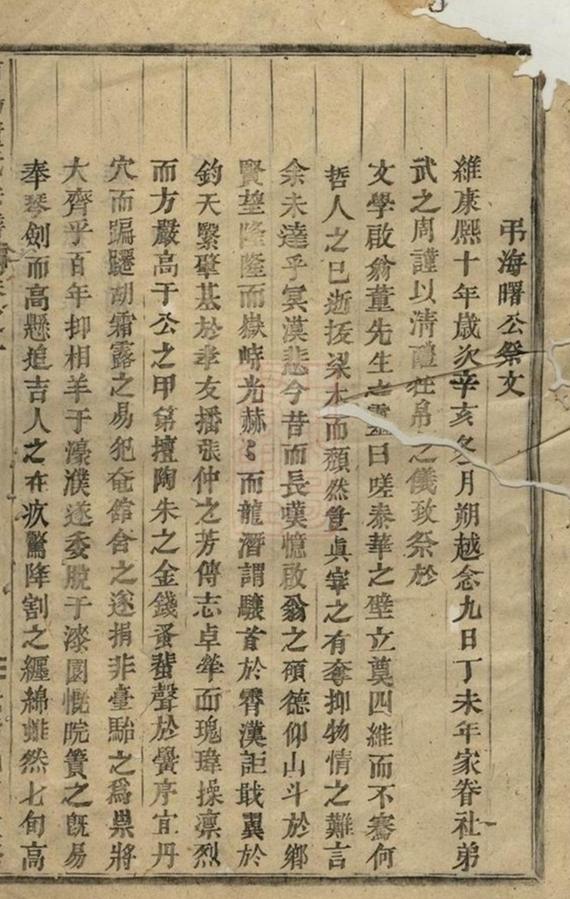 弔海曙公祭文
維康熈十年歲次辛亥冬月朔越念九日丁未年家眷社弟
武之周謹以清醴牲帛之儀致祭於
文學啟翁董先生之靈曰嗟泰華之壁立奠四維而不騫何
哲人之已逝抜梁木而頹然豈眞宰之有奪抑物情之難言
余未達乎冥漠悲今昔而長嘆憶啟翁之碩德仰山斗於鄉
賢望隆隆而嶽峙光赫赫而龍潛謂驤首於霄漢詎戢翼於
鈞天緊肇基於孝友播張仲之芳傳志卓犖而瑰瑋操凛烈
而方嚴高于公之甲第擅陶朱之金錢蚤蜚聲於黌序宜丹
穴而蹁躚胡霜露之易犯奄舘舍之遂捐非臺駘之爲祟將
大齊乎百年抑相羊于濠濮遂委脫于漆園慨晥簀之旣易
奉琴劍而高懸進吉人之在疚驚降割之纒綿雖然七旬高